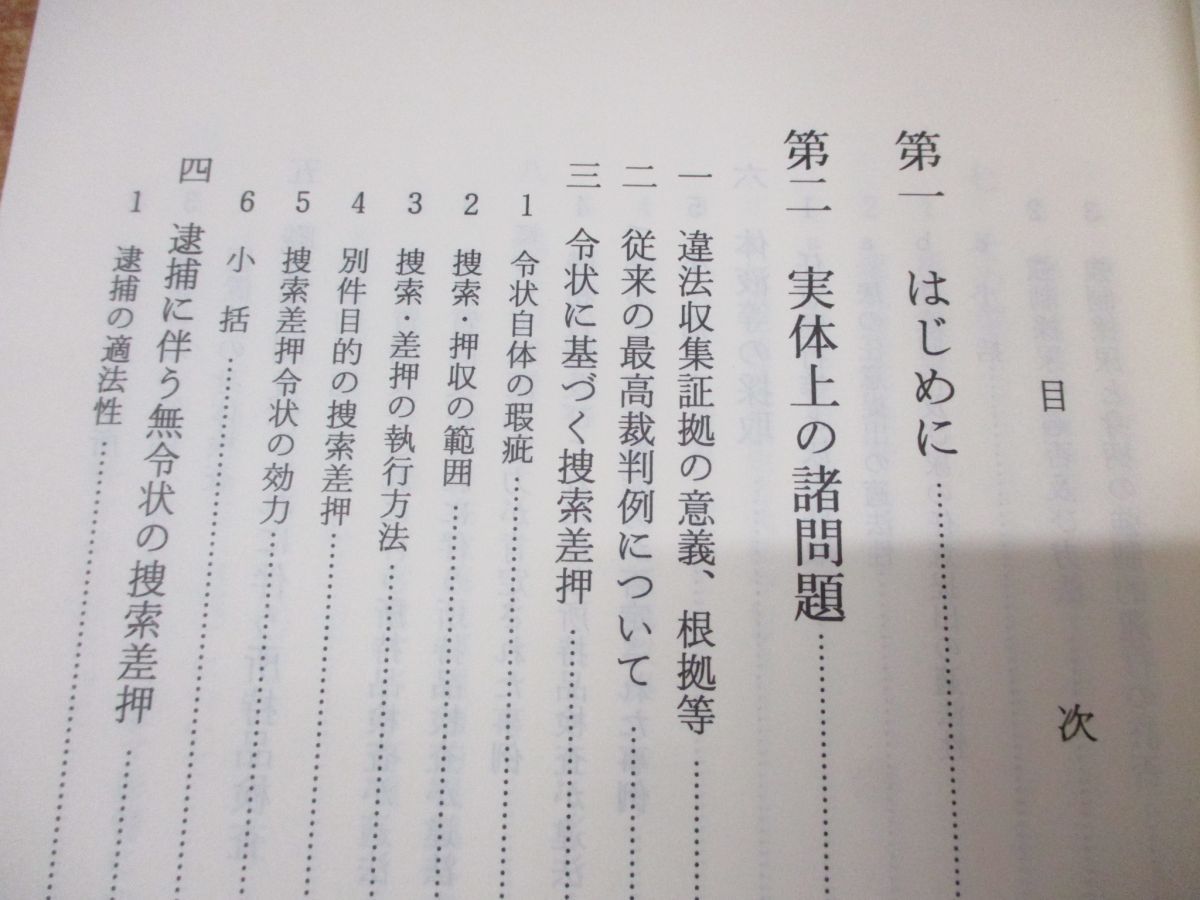 目次
第一 はじめに
第二 実体上の諸問題
一 違法収集証拠の意義、根拠等
二 従来の最高裁判例について
三 令状に基づく捜索差押
1 令状自体の瑕疵
2 捜索・押収の範囲
3 捜索・差押の執行方法
4 別件目的の捜索差押
5 捜索差押令状の効力
6 小括
四 逮捕に伴う無令状の捜索差押
1 逮捕の適法性